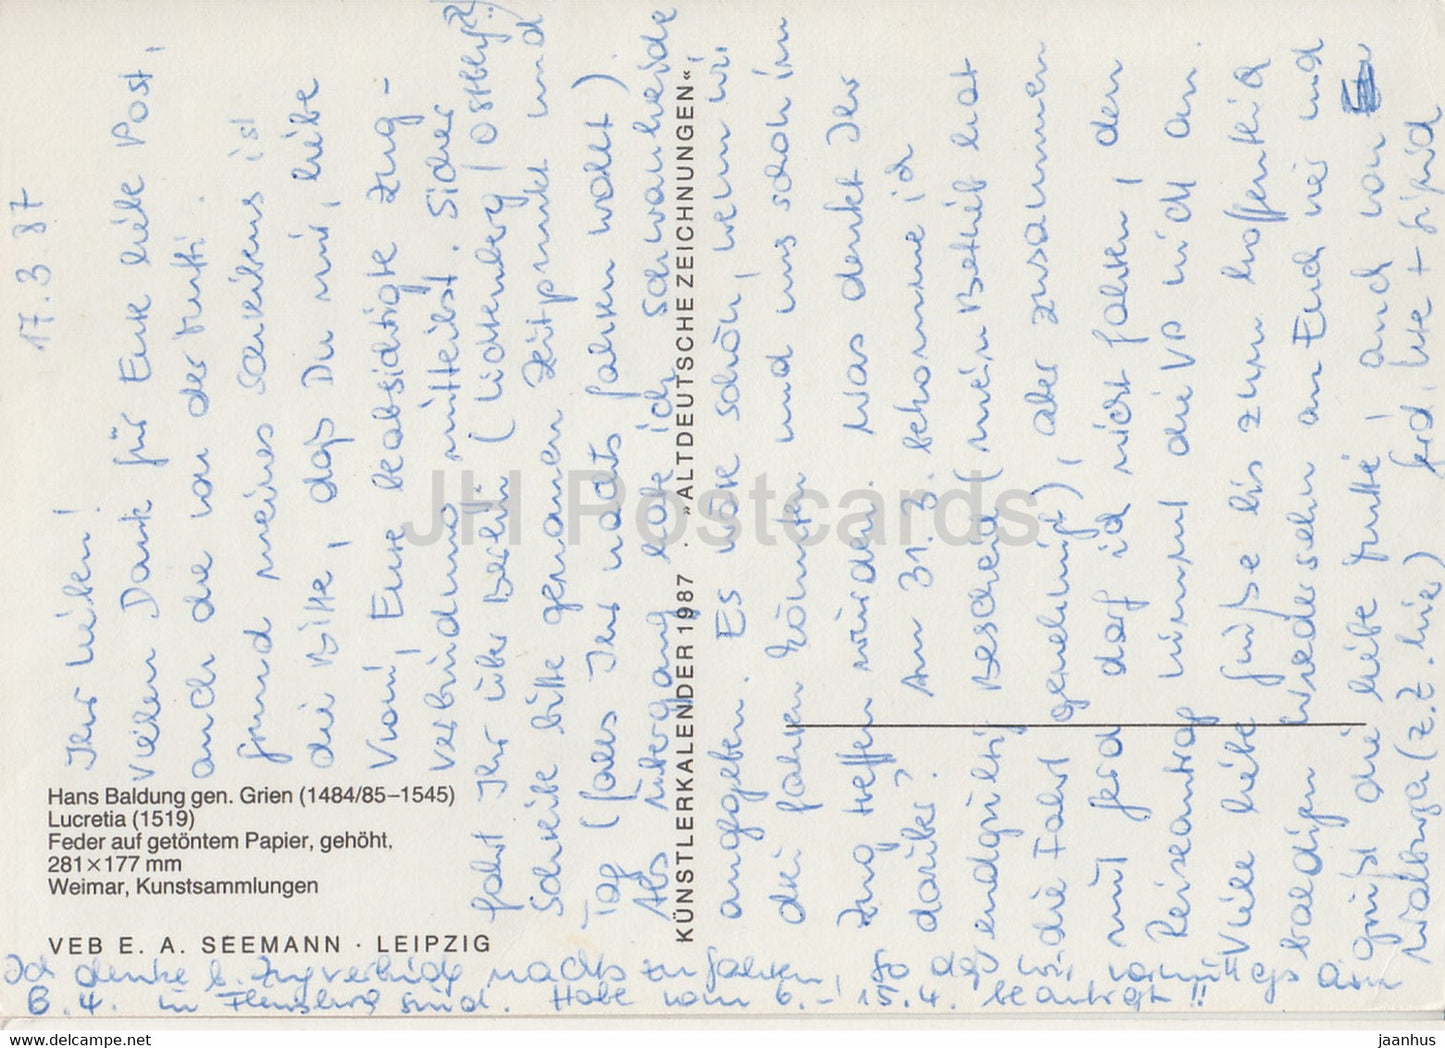 17.3.87
Ihr Lieben!
Vielen Dank für Eure liebe Post,
auch die von der Mutti.
Grund meines Schreibens ist
die Bitte, daß Du mir, liebe
Vroni, Eure beabsichtigte Zug-
verbindung mitteilst. Sicher
fahrt Ihr über Berlin (Lichtenberg/Ostbhf?)
Schreibe bitte genauen Zeitpunkt und
Tag (falls Ihr nachts fahren wollt).
Als Übergang habe ich Schwanheide
angegeben. Es wäre schön, wenn wir
die fahren könnten und uns schon im
Zug treffen würden. Was denkt Ihr
darüber? Am 31.3. bekomme ich
endgültig Bescheid (mein Betrieb hat
die Fahrt genehmigt), aber zusammen
mit Gerd darf ich nicht fahren, den
Reiseantrag nimmt die VP nicht an.
Viele liebe Grüße bis zum hoffentlich
baldigen Wiedersehen an Euch vier und
grüßt die liebe Mutti, auch von
Walburga (z.Z. hier) Gerd, Ute + Sigrid
Ich denke b. Zugverbindg nachts zu fahren, so daß wir vormittags am
6.4. in Flensburg sind. Habe vom 6.-15.4. beantragt!!
Hans Baldung gen. Grien (1484/85–1545)
Lucretia (1519)
Feder auf getöntem Papier, gehöht,
281×177 mm
Weimar, Kunstsammlungen
VEB E. A. SEEMANN · LEIPZIG
KÜNSTLERKALENDER 1987 · »ALTDEUTSCHE ZEICHNUNGEN«
JH Postcards
jaanhus